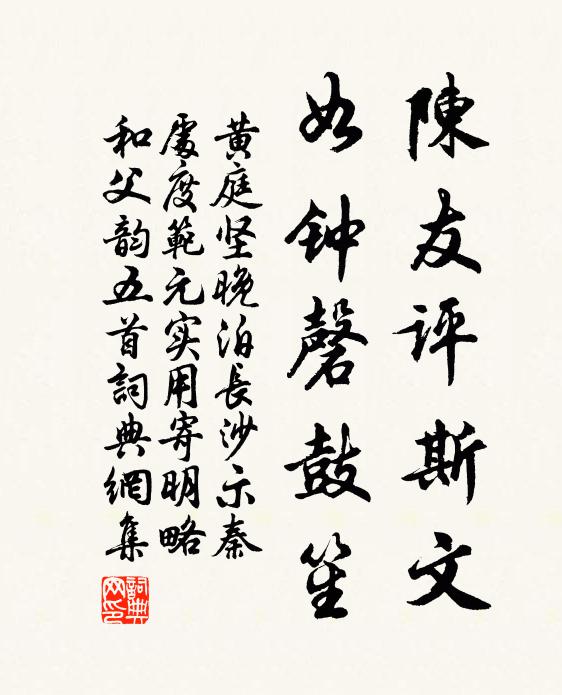 陳友评斯文
如钟磬鼓笙
黄庭坚晚泊長沙示秦
處度範元实用寄明略
和父韵五首詞典網集
詞典网印